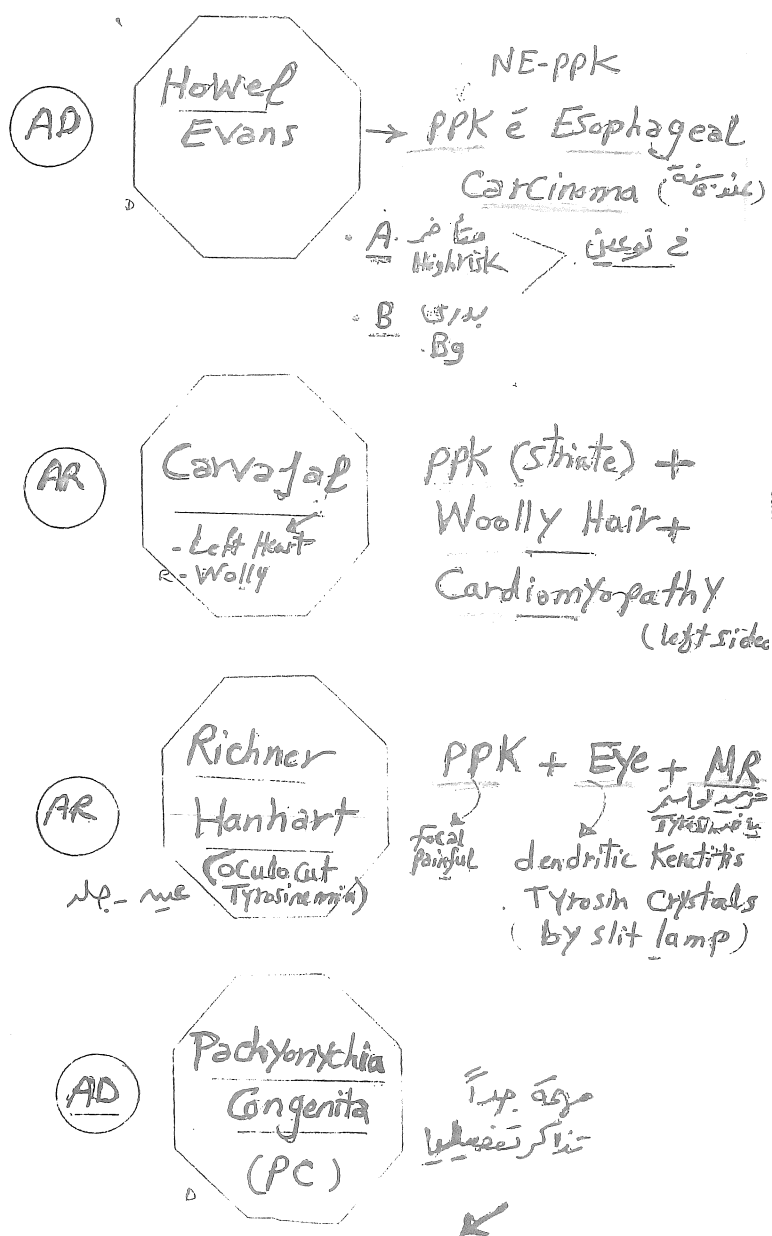 NE-PPK
AD
Howel
Evans
→ PPK ē Esophageal
Carcinoma
D
. A. متأخر
High risk
خ نوعين
. B بدرى
Bg
AR
Carvajal
- Left Heart
R - Wolly
PPK (striate) +
Woolly Hair +
Cardiomyopathy
(left sided
AR
Richner
Hanhart
(oculocut
Tyrosinemia)
عين - جلد
PPK + Eye + MR
focal
painful
dendritic Keratitis
. Tyrosin Crystals
(by slit lamp)
AD
Pachyonychia
Congenita
(PC)
D
مهمة جداً
تذاكر تفصيليا